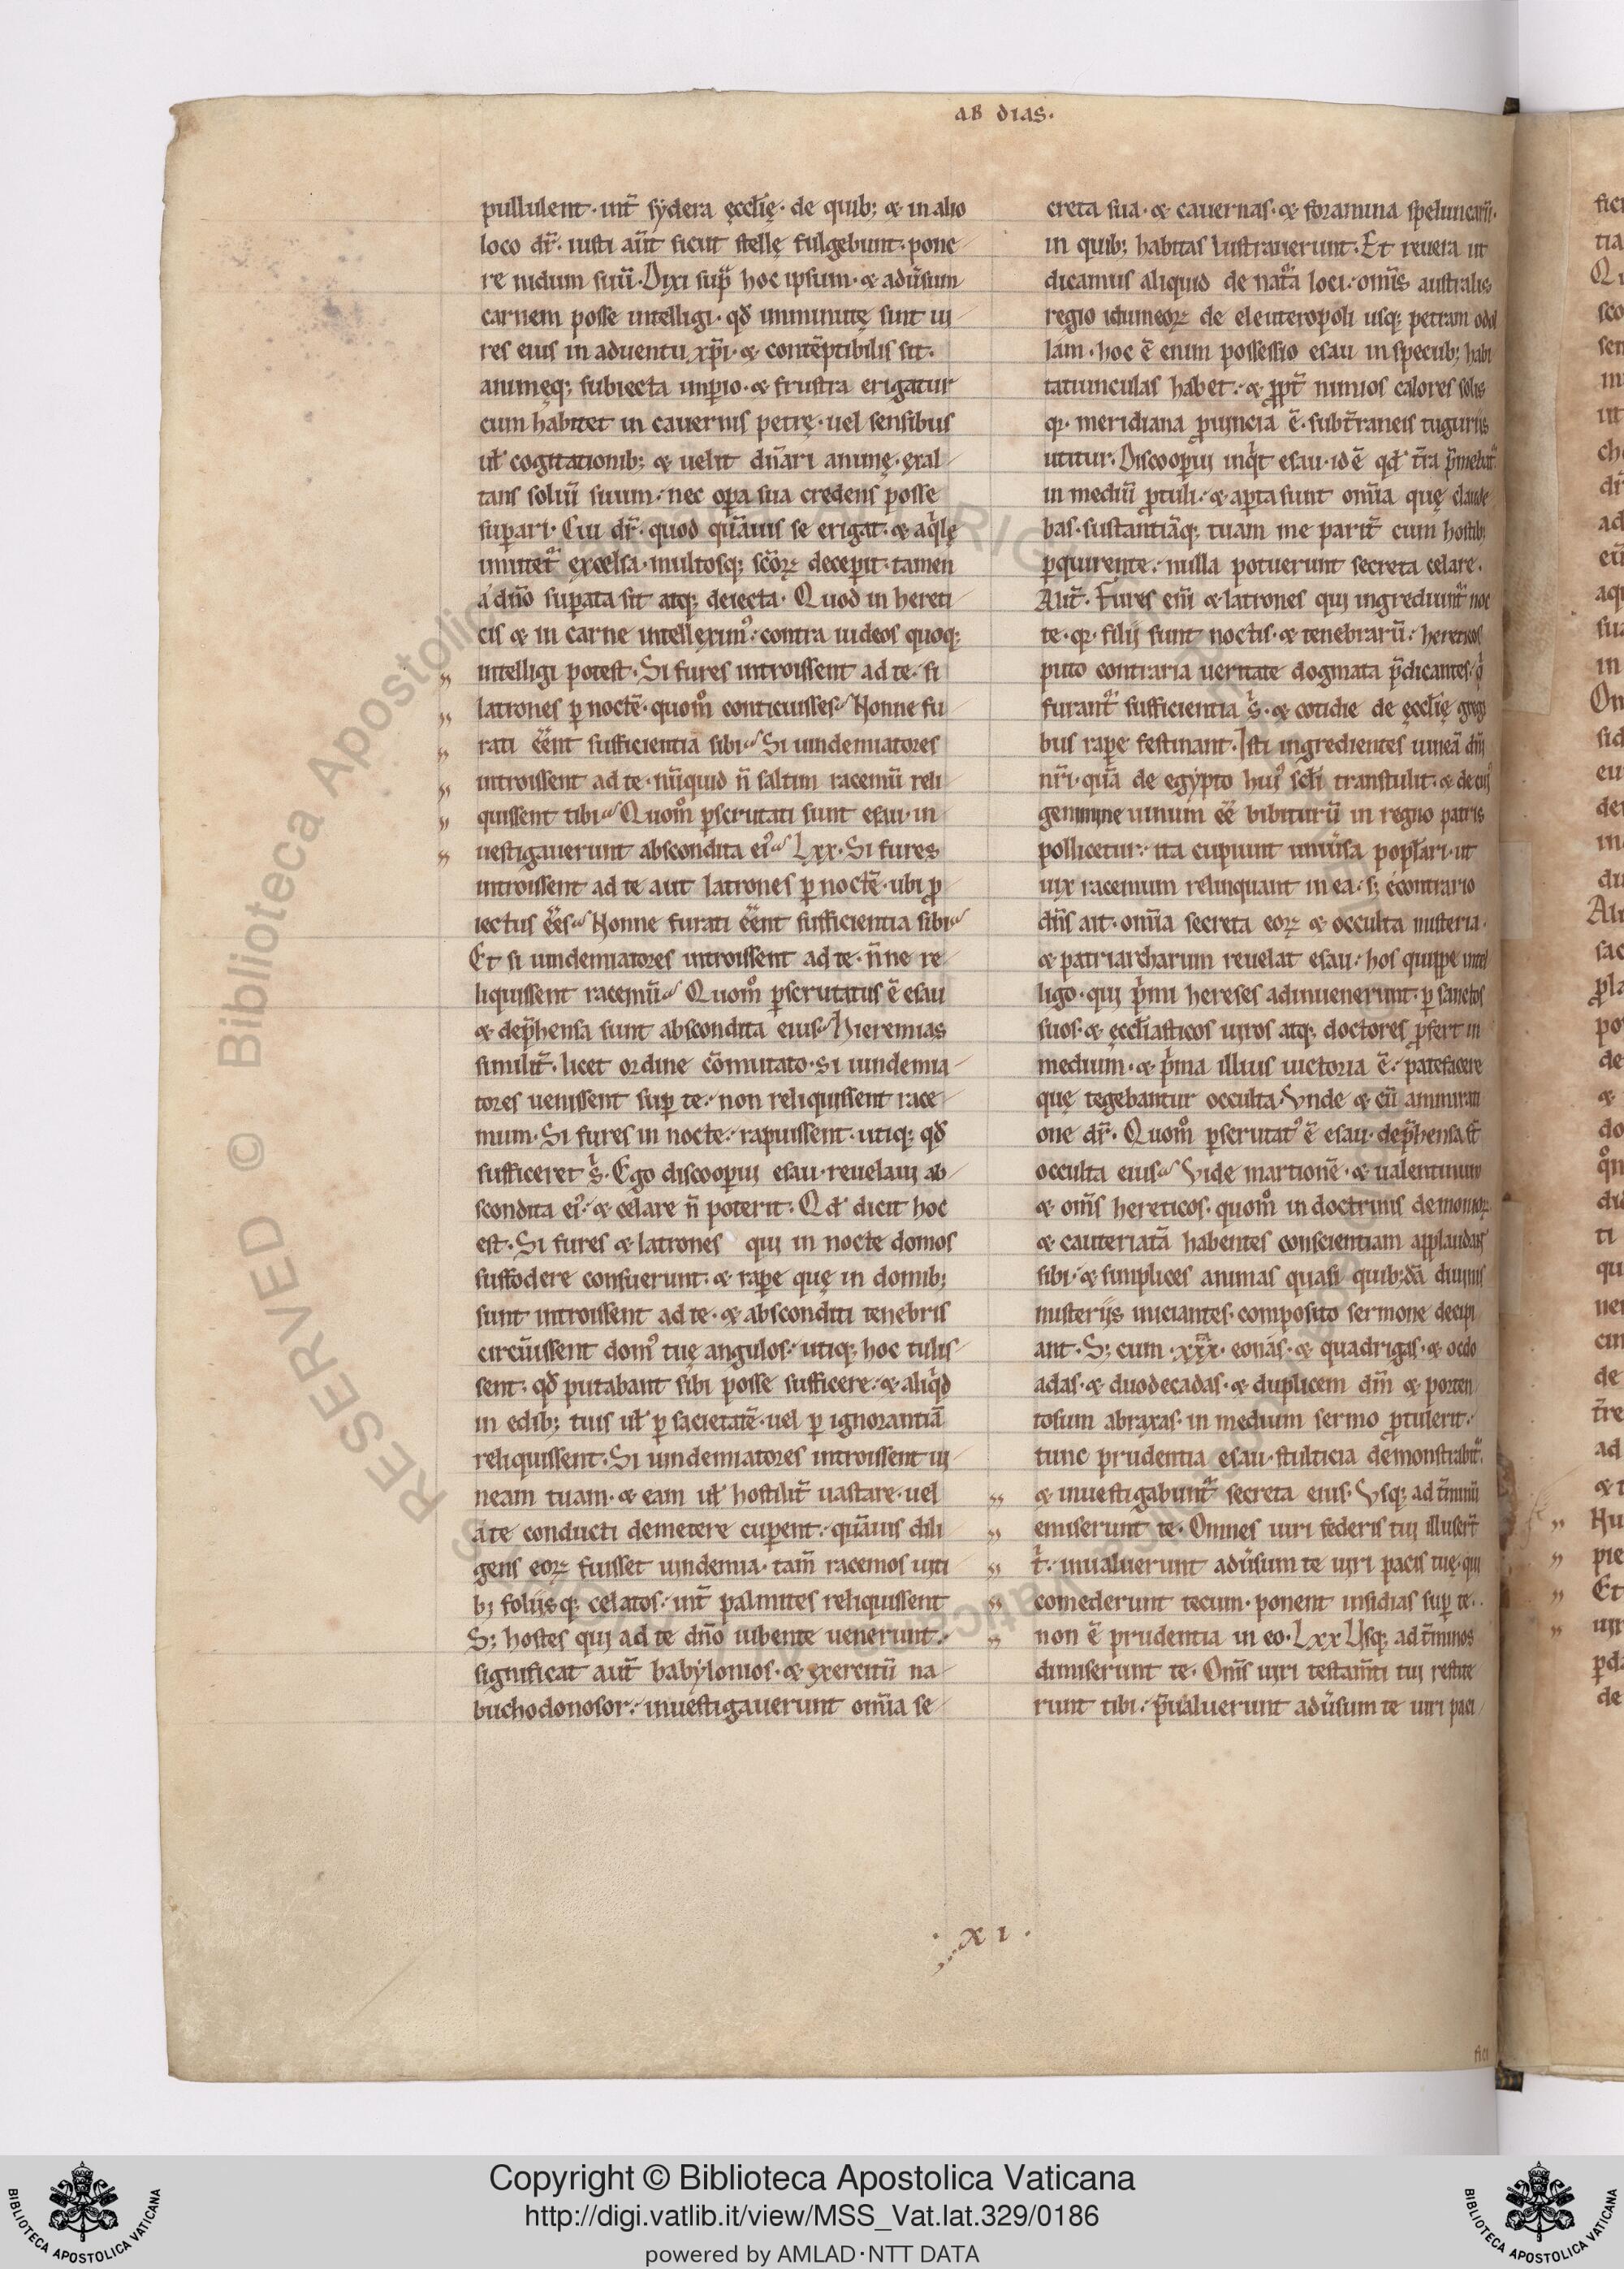 AB DIAS.
pullulent. int̄ sydera ęccl̄ię. de quib; & in alio
loco dr̄. iusti aūt sicut stellę fulgebunt. pone
re nidum suū. Dixi sup̄ hoc ipsum. & adūsum
carnem posse intelligi. qđ imminutę sunt ui
res eius in aduentu xp̄i. & contēptibilis sit.
animęq; subiecta imperio. & frustra erigatur
cum habitet in cauernis petrę. uel sensibus
ul̄ cogitationib; & uelit dn̄ari animę. exal
tans soliū suum. nec opera sua credens posse
superari. Cui dr̄. quod quāuis se erigat. & aqͥlę
imitet᷑ excelsa. multosq; scōꝝ decepit. tamen
a dn̄o superata sit atq; deiecta. Quod in hereti
cis & in carne intelleximꝰ. contra iudeos quoq;
„ intelligi potest. Si fures introissent ad te. si
„ latrones ꝑ noctē. quom̊ conticuisses. Nonne fu
„ rati eēnt sufficientia sibi. Si uindemiatores
„ introissent ad te. nūquid n̄ saltim racemū reli
„ quissent tibi. Quom̊ ꝑscrutati sunt esau. in
„ uestigauerunt abscondita eiꝰ. Lxx. Si fures
introissent ad te aut latrones ꝑ noctē. ubi ꝓ
iectus eēs. Nonne furati eēnt sufficientia sibi
Et si uindemiatores introissent ad te. n̄ne re
liquissent racemū. Quom̊ ꝑscrutatus ē esau
& dep̄hensa sunt abscondita eius. Hieremias
similit̄. licet ordine cōmutato. Si uindemia
tores uenissent sup̄ te. non reliquissent race
mum. Si fures in nocte. rapuissent. utiq; qđ
sufficeret sͥ. Ego discooperui esau. reuelaui ab
scondita eiꝰ. & celare n̄ poterit. Qđ dicit hoc
est. Si fures & latrones qui in nocte domos
suffodere consuerunt. & rapere quę in domib;
sunt introissent ad te. & absconditi tenebris
circūissent domꝰ tuę angulos. utiq; hoc tulis
sent. qđ putabant sibi posse sufficere. & aliqͥd
in edib; tuis ul̄ ꝑ sacietatē. uel ꝑ ignorantiā
reliquissent. Si uindemiatores introissent ui
neam tuam. & eam ul̄ hostilit̄ uastare. uel
a te conducti demetere cuperent. quāuis dili
gens eoꝝ fuisset uindemia. tam̄ racemos uiti
b; folijsq; celatos. int̄ palmites reliquissent
S; hostes qui ad te dn̄o iubente uenerunt.
significat aut̄ babylonios. & exercitū na
buchodonosor. inuestigauerunt om̄ia se
creta sua. & cauernas. & foramina speluncarū.
in quib; habitas lustrauerunt. Et reuera ut
dicamus aliquid de nat᷑a loci. om̄is australis
regio idumeoꝝ de eleuteropoli usq; petram
lam. hoc ē enim possessio esau in specub; habi
tatiunculas habet. & ꝓpt̄ nimios calores solis
qꝛ meridiana ꝓuincia ē. subt̄raneis tuguriis
utitur. Discooperui inqͥt esau. id ē qđ t̄ra p̄mebat᷑
in mediū ꝓtuli. & aperta sunt om̄ia quę claude
bas. sustantiāq; tuam me parit̄ cum hostib;
ꝑquirente. nulla potuerunt secreta celare.
Alit̄. Fures eni̅ & latrones qui ingrediunt᷑ noc
te. qꝛ filij sunt noctis. & tenebrarū. hereticos
puto contraria ueritate dogmata p̄dicantes. qͥ
furant᷑ sufficientia sͥ. & cotidie de ęccl̄ię gregi
bus rapere festinant. Isti ingredientes uineā dn̄i
nr̄i. quā de egypto huiꝰ sc̄li transtulit. & de eiꝰ
gemmine uinum eē bibiturū in regno patris
pollicetur. ita cupiunt uniūsa popl̄ari. ut
uix racemum relinquant in ea. s; econtrario
dn̄s ait. om̄ia secreta eoꝝ & occulta misteria.
& patriarcharum reuelat esau. hos quippe intel
ligo. qui pͥmi hereses adinuenerunt. ꝑ sanctos
suos. & ęccl̄iasticos uiros atq; doctores ꝓfert in
medium. & pͥma illius uictoria ē. patefacere
quę tegebantur occulta. Vnde & cū ammirati
one dr̄. Quom̊ ꝑscrutatꝰ ē esau. dep̄hensa st̄
occulta eius. Vide martionē. & ualentinum
& om̄s hereticos. quom̊ in doctrinis demonioꝝ
& cauteriatā habentes conscientiam applaudant
sibi. & simplices animas quasi quib;dā diuinis
misterijs iniciantes. composito sermone decipi
ant. S; cum .xxx. eonas. & quadrigas. & ocdo
adas. & duodecadas. & duplicem dm̄ & porten
tosum abraxas. in medium sermo ꝓtulerit.
tunc prudentia esau. stulticia demonstrabit᷑.
„ & inuestigabunt᷑ secreta eius. Vsq; ad t̄minū
„ emiserunt te. Omnes uiri federis tui illuser̄t
„ tͥ. inualuerunt adūsum te uiri pacis tuę. qui
„ comederunt tecum. ponent insidias sup̄ te.
„ non ē prudentia in eo. Lxx Vsq; ad t̄minos
dimiserunt te. Om̄s uiri testam̄ti tui restite
runt tibi. p̄ualuerunt adūsum te uiri paci
.xi.
Copyright © Biblioteca Apostolica Vaticana
http://digi.vatlib.it/view/MSS_Vat.lat.329/0186
powered by AMLAD·NTT DATA